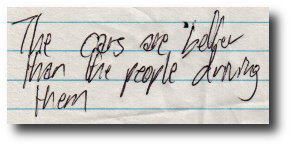 The cars are better
than the people driving
them